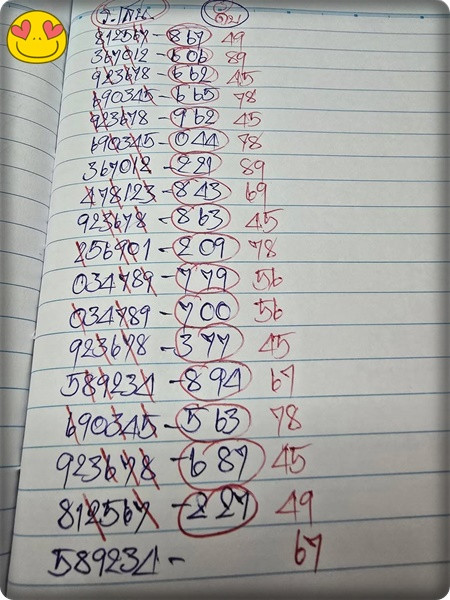 จ.เดิน ดับ
812567 - 867 49
367012 - 606 89
923678 - 662 45
690345 - 665 78
923678 - 962 45
690345 - 044 78
367012 - 221 89
478123 - 843 69
923678 - 863 45
256901 - 209 78
034789 - 779 56
034789 - 700 56
923678 - 377 45
589234 - 894 67
690345 - 563 78
923678 - 687 45
812567 - 227 49
589234 - 67